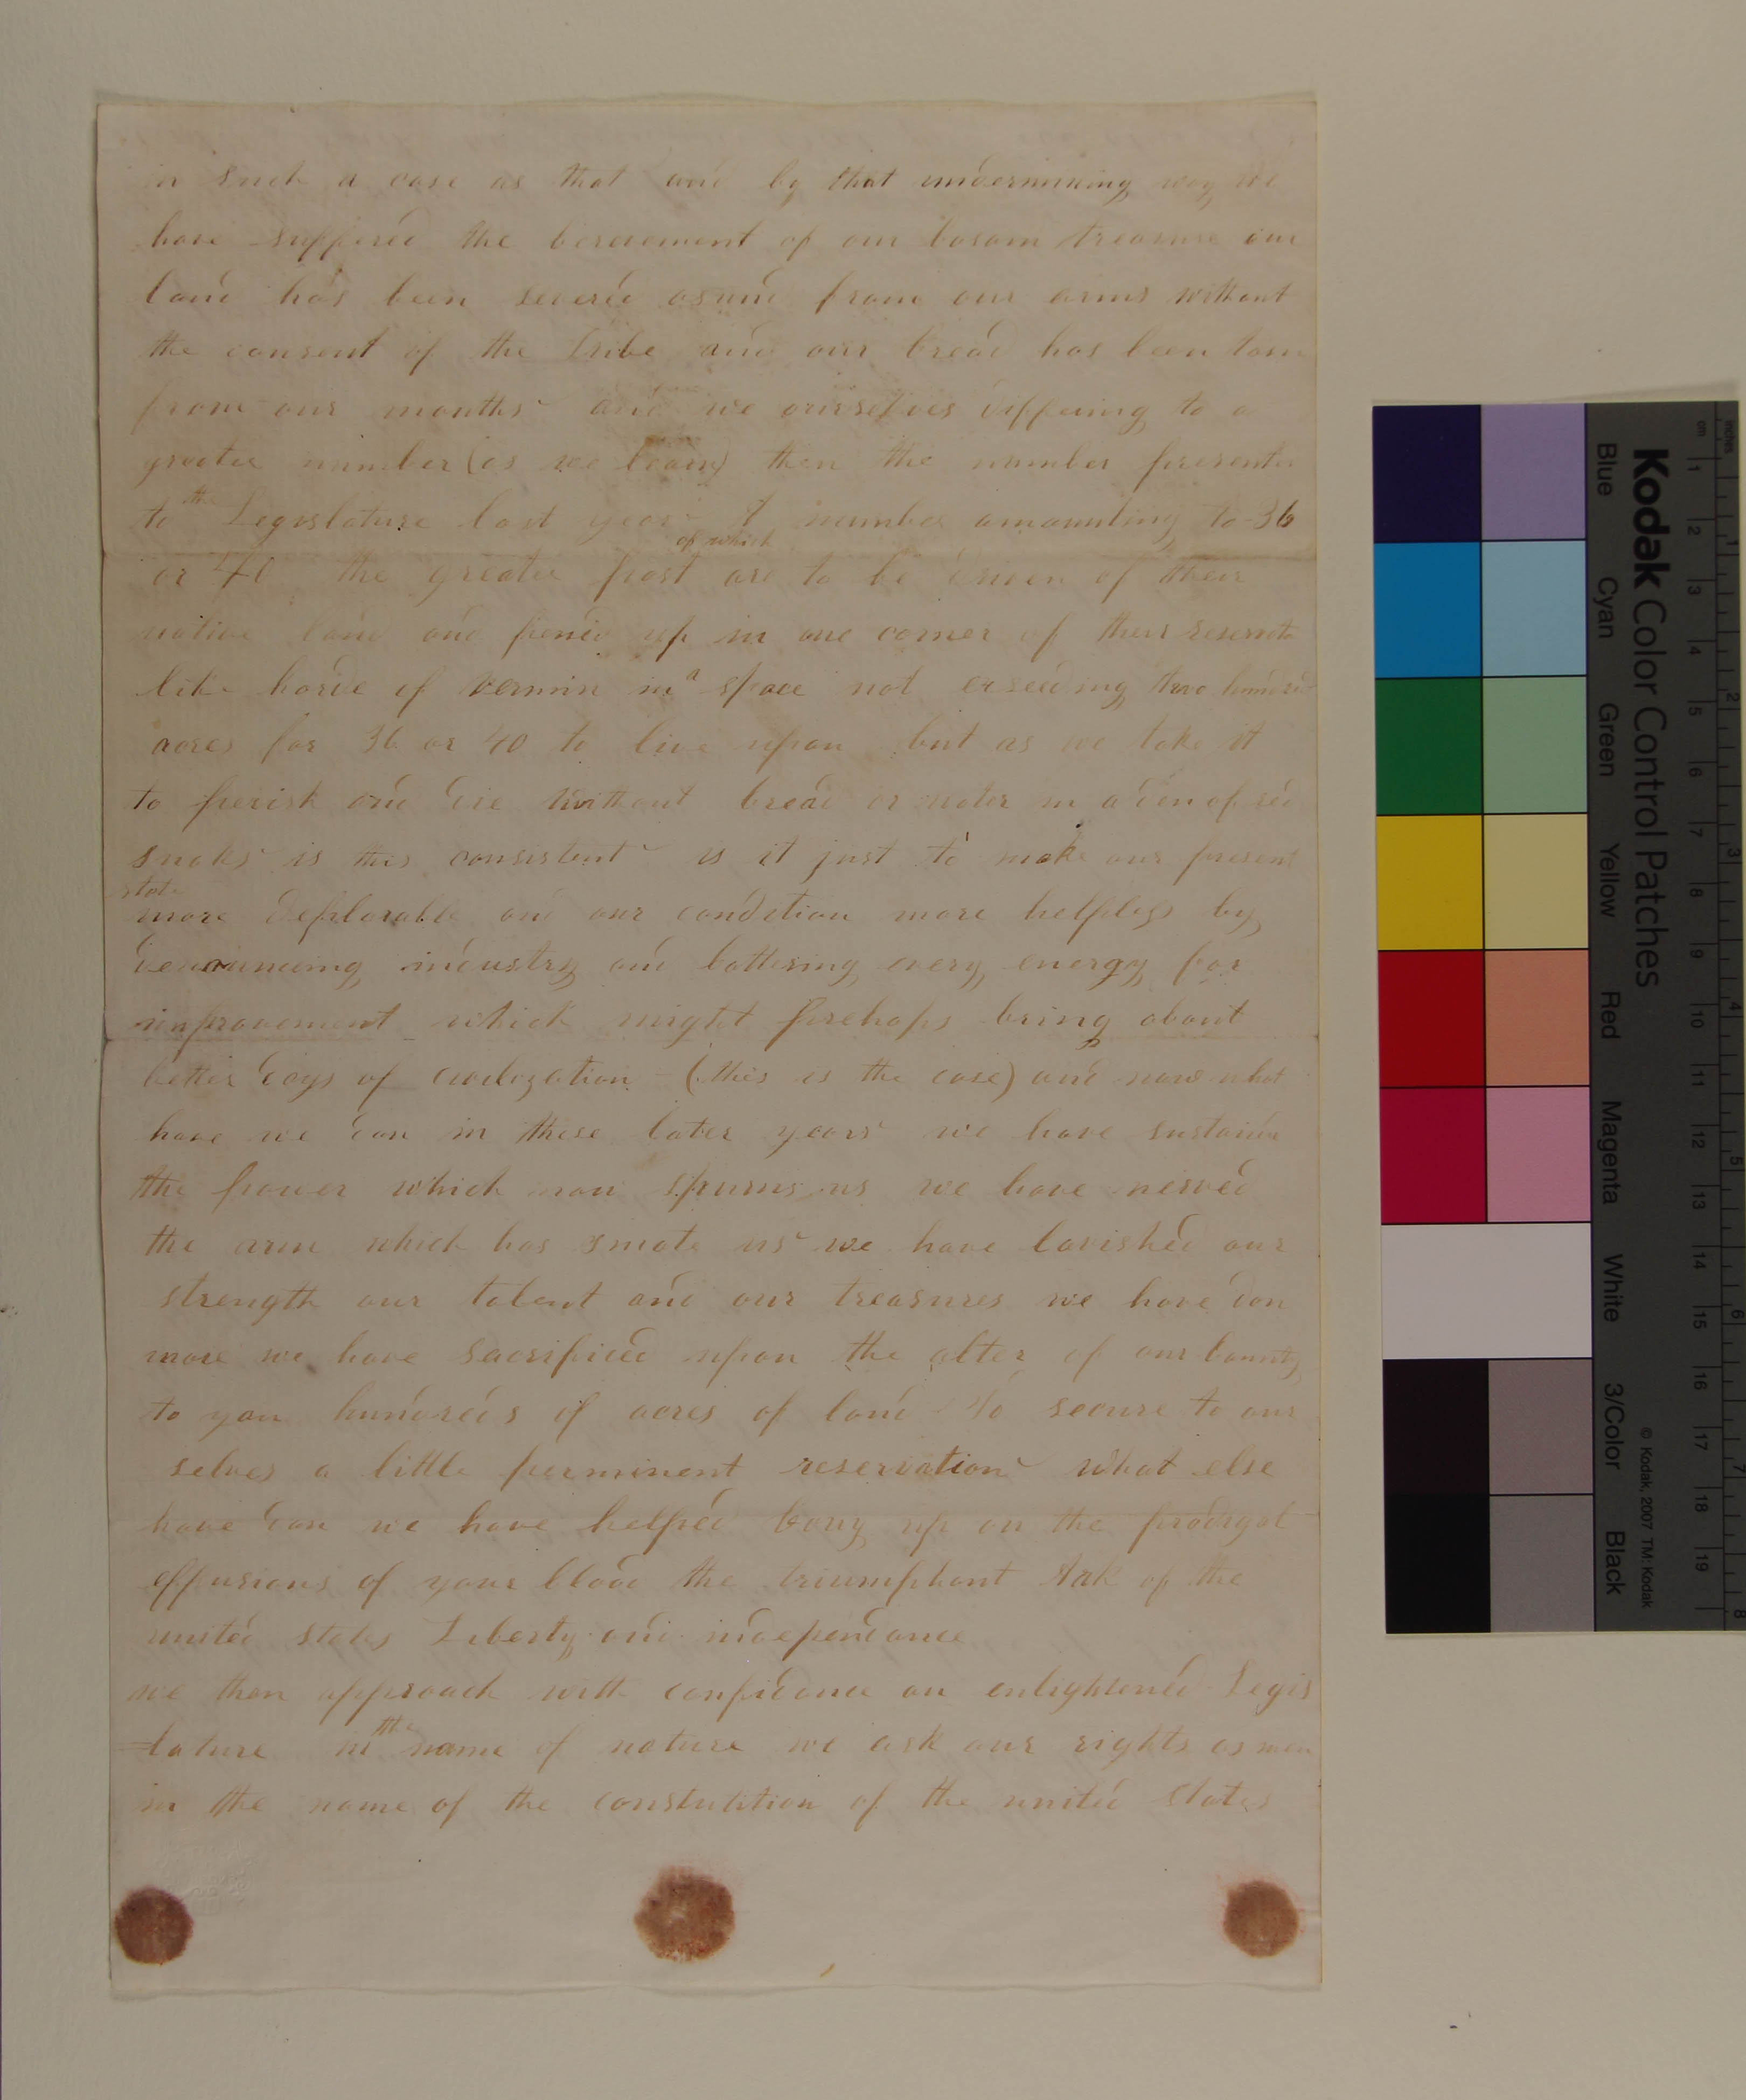 in such a case as that and by that undermining way we
have suffered the bereavement of our bosom treasure our
land has been severed asund from our arms without
the consent of the tribe and our bread has been torn
from our mouths and we ourselves differing to a
greater number (as we learn) then the number presented
to the Legislature last year A number amounting to 36
or 40 of which the greater part are to be driven of their
native land and pened up in one corner of their reservate
like horde of vermin in a space not exseeding two hundred
acres for 36 or 40 to live upon but as we take it
to perish and die without bread or water in a den of red
snakes is this consistent is it just to make our present
state
more deplorable and our condition more helpless by
denouncing industry and battering every energy for
improvement which might perhaps bring about
better days of civilization - (this is the case) and now what
have we don in these later years we have sustained
the power which now spurns us we have nerved
the arm which has smote us we have lavished our
strength our talent and our treasures we have don
more we have sacrificed upon the alter of our bounty
to you hundreds of acres of land To secure to our
selves a little perminent reservation what else
have don we have helped bouy up on the prodigal
effusions of your blood the triumphant Ark of the
united states Liberty and independance
we then approach with confidance an enlightened Legis
=lature in the name of nature we ask our rights as men
in the name of the constutition of the united states
Kodak Color Control Patches
Blue Cyan Green Yellow Red Magenta White 3/Color Black
© Kodak, 2007 TM: Kodak
cm 1 2 3 4 5 6 7 8 9 10 11 12 13 14 15 16 17 18 19
inches 1 2 3 4 5 6 7 8